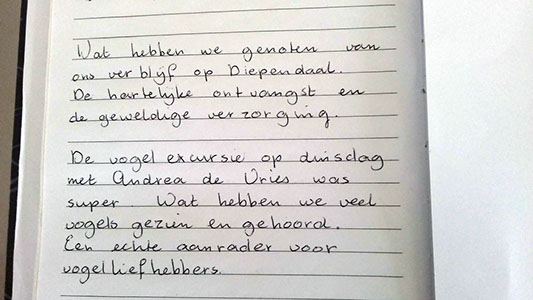 Wat hebben we genoten van
ons verblijf op Diependaal.
De hartelijke ontvangst en
de geweldige verzorging.
De vogel excursie op dinsdag
met Andrea de Vries was
super. Wat hebben we veel
vogels gezien en gehoord.
Een echte aanrader voor
vogelliefhebbers.